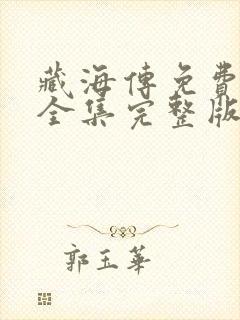 藏海傳免費
全集完整版
郭玉華